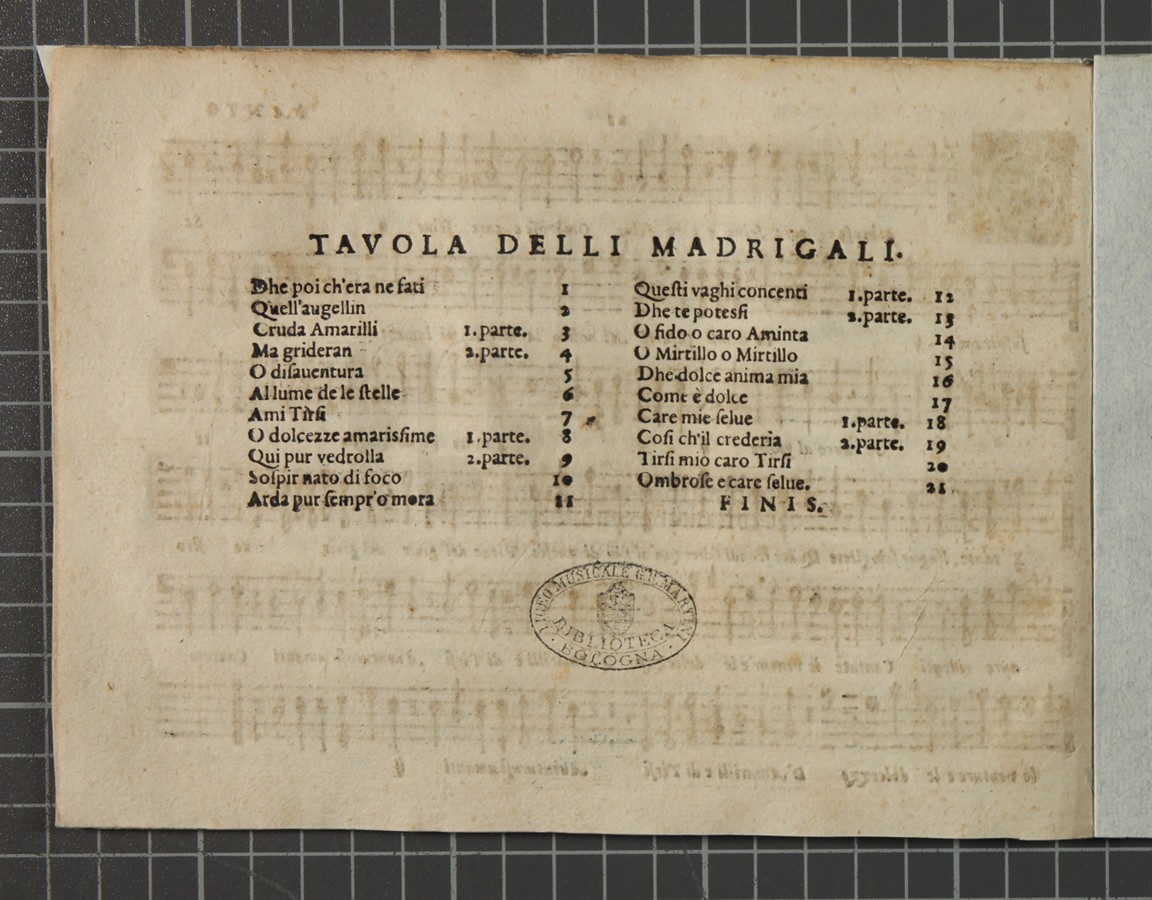 TAVOLA DELLI MADRIGALI.
Dhe poi ch'era ne fati 1
Quell'augellin 2
Cruda Amarilli 1.parte. 3
Ma grideran 2.parte. 4
O disauentura 5
Al lume de le stelle 6
Ami Tirsi 7
O dolcezze amarissime 1.parte. 8
Qui pur vedrolla 2.parte. 9
Sospir nato di foco 10
Arda pur sempr'o mora 11
Questi vaghi concenti 1.parte. 12
Dhe te potessi 2.parte. 13
O fido o caro Aminta 14
O Mirtillo o Mirtillo 15
Dhe dolce anima mia 16
Come è dolce 17
Care mie selue 1.parte. 18
Cosi ch'il crederia 2.parte. 19
Tirsi mio caro Tirsi 20
Ombrose e care selue. 21
FINIS.
LICEO MUSICALE G.B. MARTINI
BIBLIOTECA
BOLOGNA